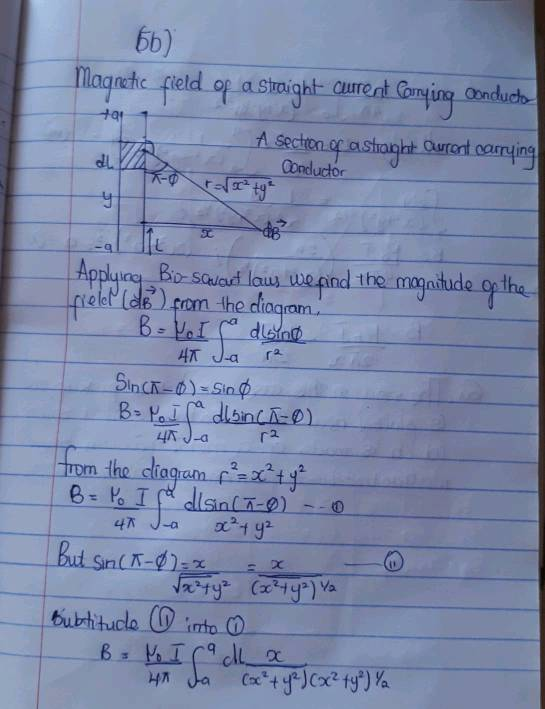 5b)
Magnetic field of a straight current Carrying conducto
+a
A section of a straight current carrying
Conductor
dL
π-φ
r=√x²+y²
y
x
dB⃗
-a
I
Applying Bio-savart laws we find the magnitude of the
field (dB⃗) from the diagram,
B = μ₀ I / 4π ∫₋ₐᵃ dlsinφ / r²
Sin(π-φ)=sinφ
B= μ₀ I / 4π ∫₋ₐᵃ dlsin(π-φ) / r²
from the diagram r²=x²+y²
B = μ₀ I / 4π ∫₋ₐᵃ dlsin(π-φ) / x²+y² --- ①
But sin(π-φ) = x / √x²+y² = x / (x²+y²)^1/2 —— ⑪
Subtitude ⑪ into ①
B = μ₀ I / 4π ∫₋ₐᵃ dL x / (x²+y²)(x²+y²)^1/2